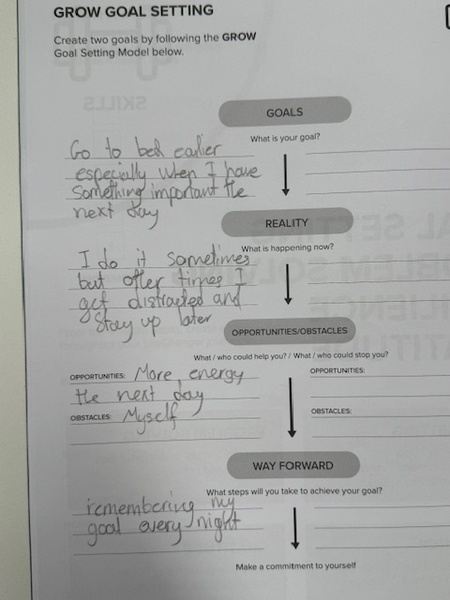 GROW GOAL SETTING
Create two goals by following the GROW
Goal Setting Model below.
GOALS
What is your goal?
Go to bed earlier
especially when I have
something important the
next day
REALITY
What is happening now?
I do it sometimes
but other times I
get distracted and
stay up later
OPPORTUNITIES/OBSTACLES
What / who could help you? / What / who could stop you?
OPPORTUNITIES: More energy
the next day
OBSTACLES: Myself
OPPORTUNITIES:
OBSTACLES:
WAY FORWARD
What steps will you take to achieve your goal?
remembering my
goal every night
Make a commitment to yourself